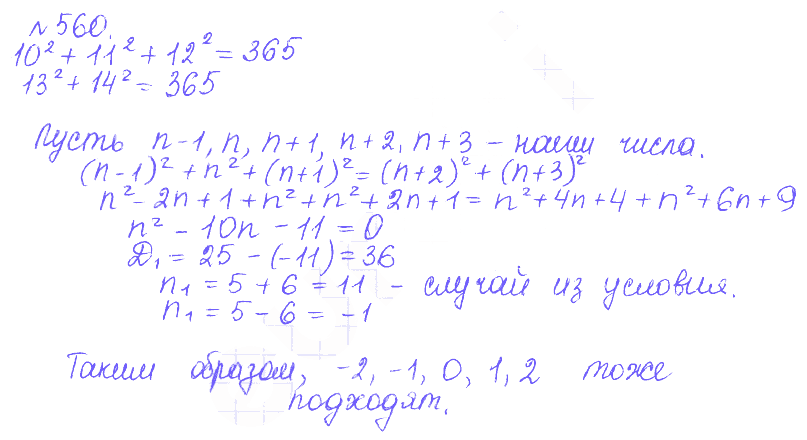 № 560.
10² + 11² + 12² = 365
13² + 14² = 365
Пусть n-1, n, n+1, n+2, n+3 – наши числа.
(n-1)² + n² + (n+1)² = (n+2)² + (n+3)²
n² - 2n + 1 + n² + n² + 2n + 1 = n² + 4n + 4 + n² + 6n + 9
n² - 10n - 11 = 0
Д₁ = 25 - (-11) = 36
n₁ = 5 + 6 = 11 – случай из условия.
n₁ = 5 - 6 = -1
Таким образом, -2, -1, 0, 1, 2 тоже
подходят.